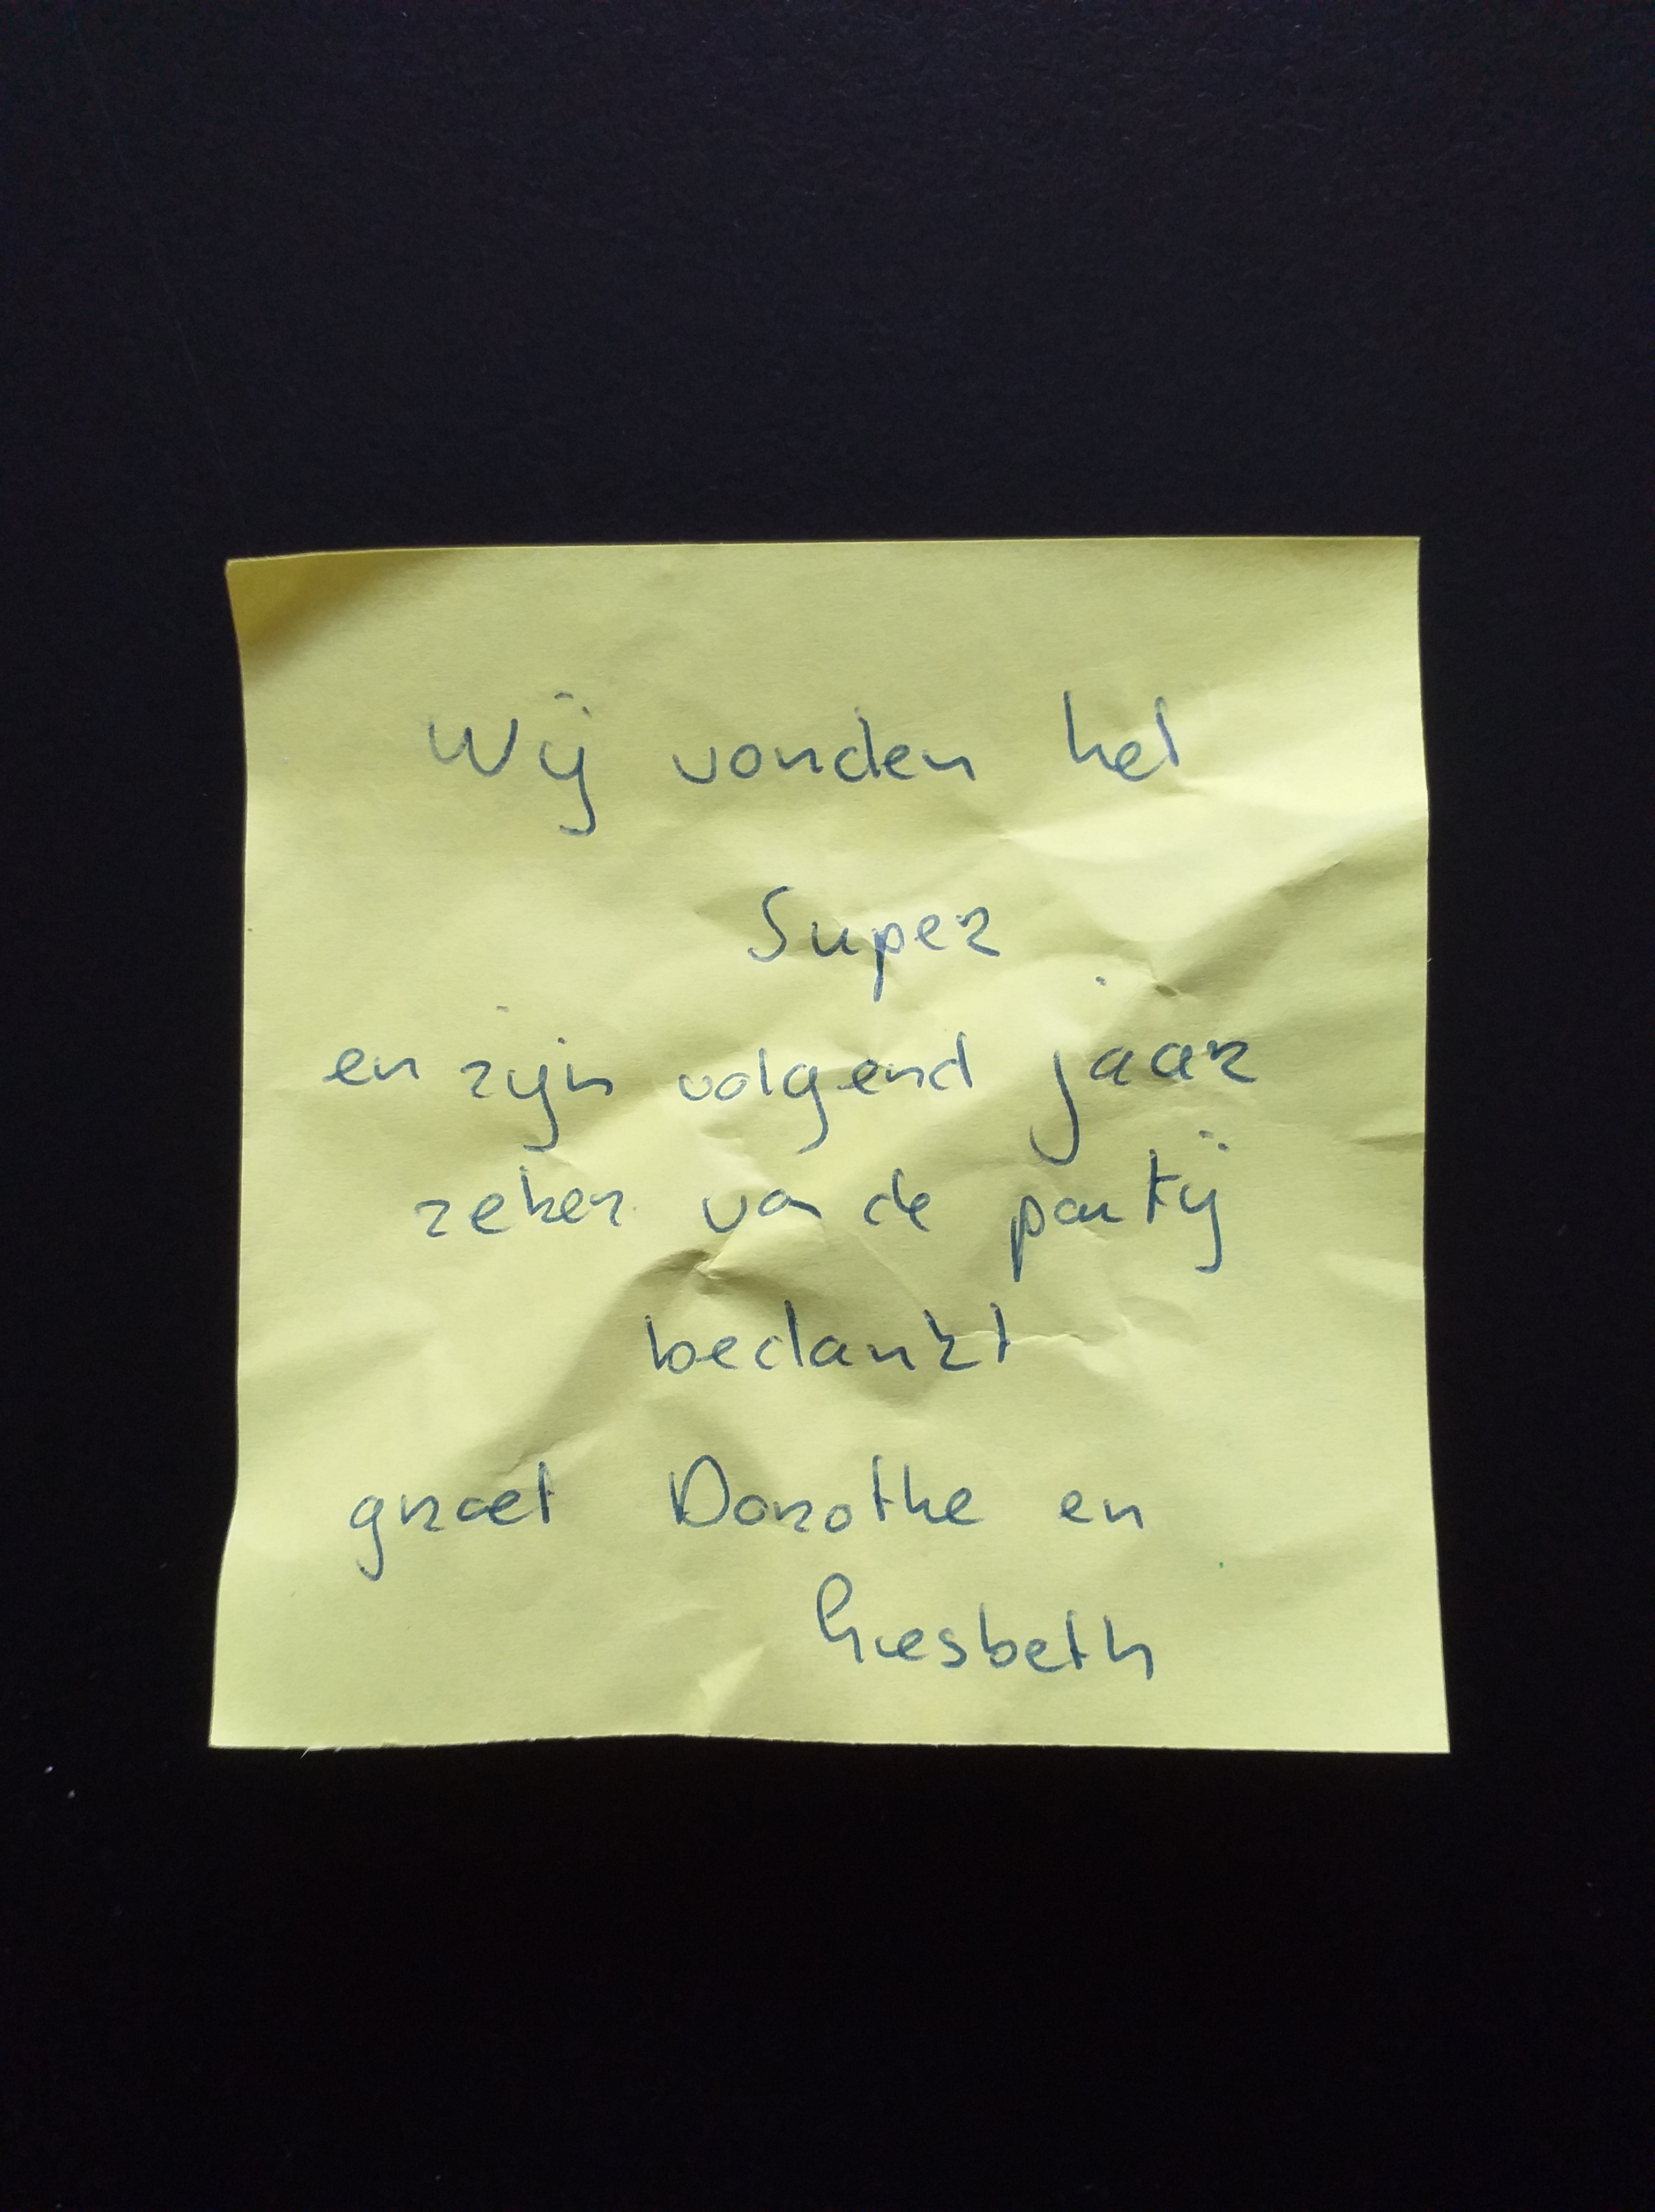 Wij vonden het
Super
en zijn volgend jaar
zeker va de partij
bedankt
groet Dorothe en
Liesbeth